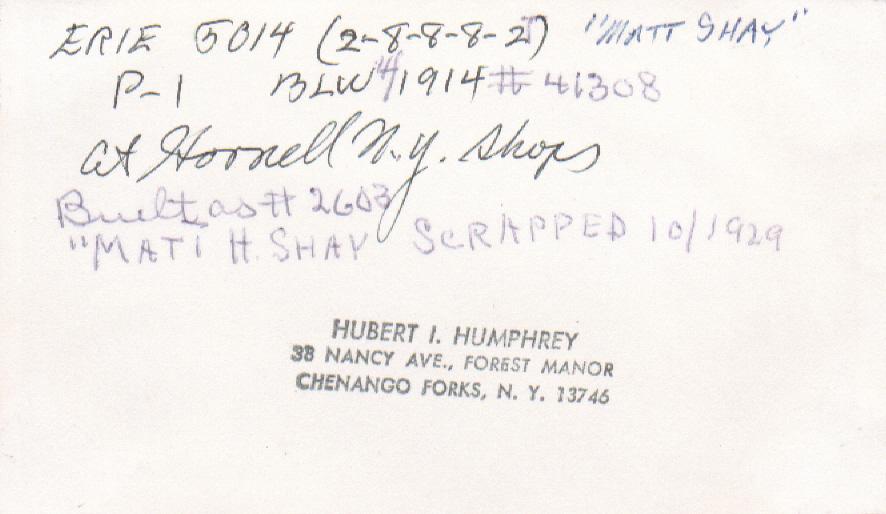 ERIE 5014 (2-8-8-8-2T) "MATT SHAY"
P-1 BLW 4/1914 # 41308
at Hornell N.Y. Shops
Built as # 2603
"MATT H. SHAY SCRAPPED 10/1929
HUBERT I. HUMPHREY
38 NANCY AVE., FOREST MANOR
CHENANGO FORKS, N. Y. 13746